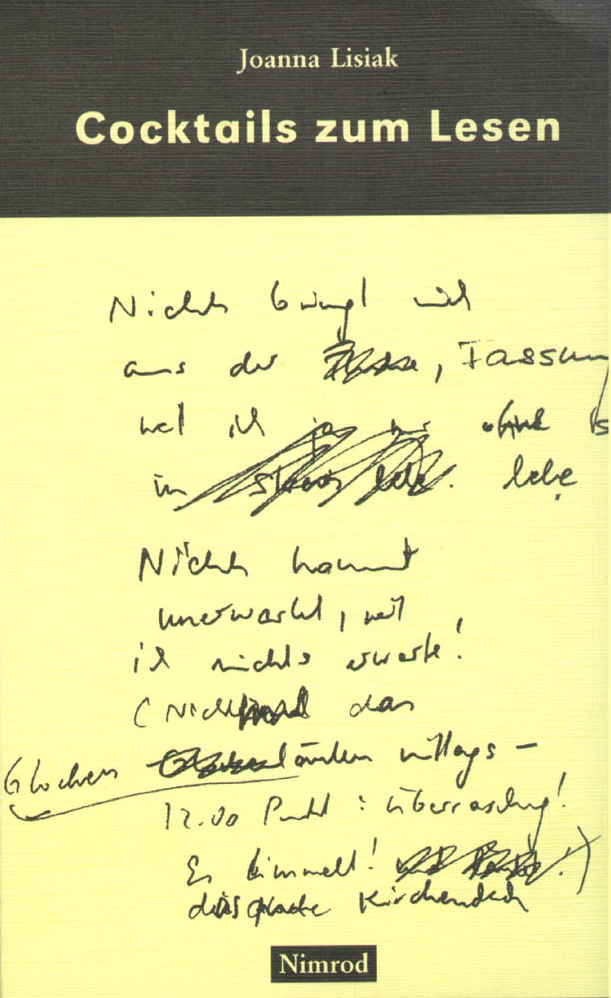 Joanna Lisiak
Cocktails zum Lesen
Nichts bringt mich
aus der Fassung
weil ich
in lebe
Nichts kommt
unerwartet, weil
ich nichts erwarte!
(Nicht das
Glocken läuten mittags –
12.00 Punkt : Überraschung!
Es bimmelt!
Kirchendach
Nimrod